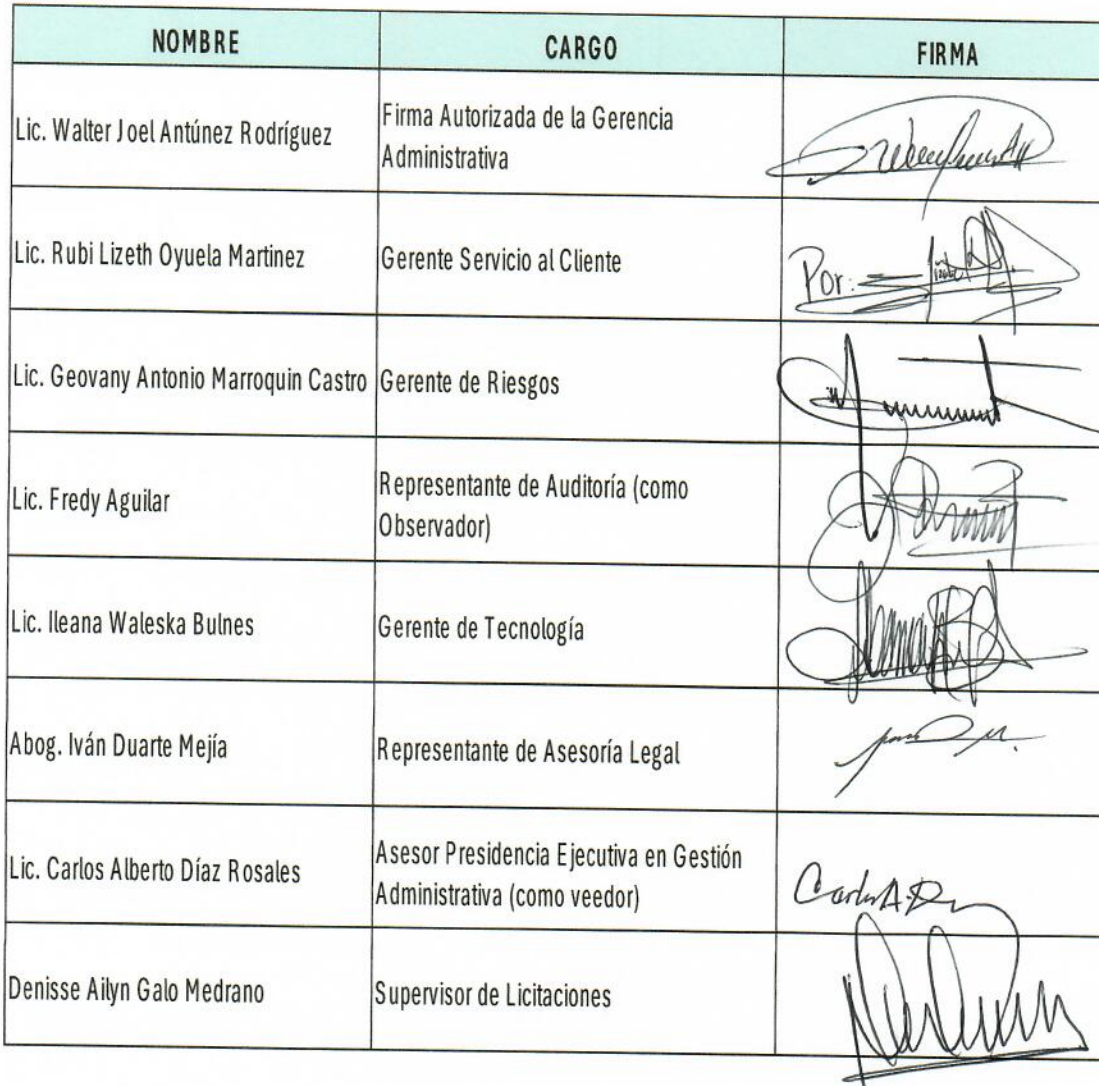 NOMBRE CARGO FIRMA
Lic. Walter Joel Antúnez Rodríguez
Firma Autorizada de la Gerencia
Administrativa
Lic. Rubi Lizeth Oyuela Martinez
Gerente Servicio al Cliente
Por:
Lic. Geovany Antonio Marroquin Castro
Gerente de Riesgos
Lic. Fredy Aguilar
Representante de Auditoría (como
Observador)
Lic. Ileana Waleska Bulnes
Gerente de Tecnología
Abog. Iván Duarte Mejía
Representante de Asesoría Legal
Lic. Carlos Alberto Díaz Rosales
Asesor Presidencia Ejecutiva en Gestión
Administrativa (como veedor)
Denisse Ailyn Galo Medrano
Supervisor de Licitaciones